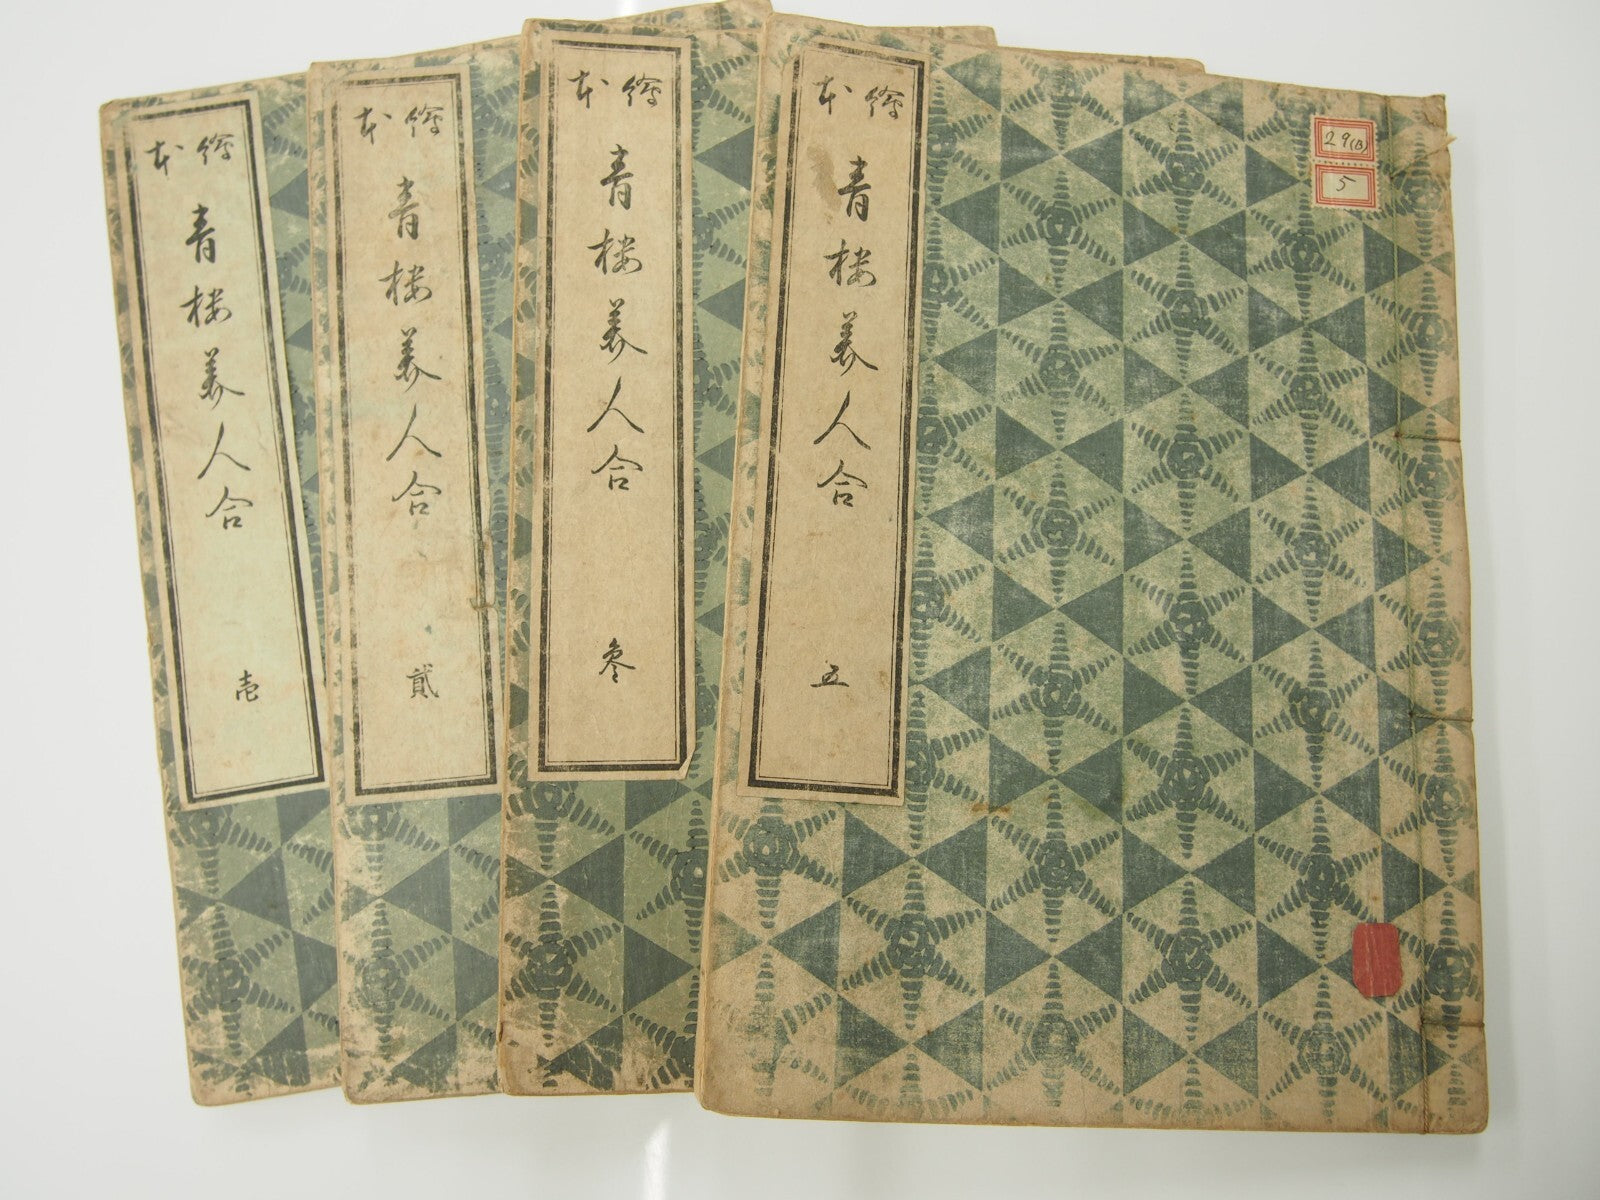 繪本
青楼美人合
壱
繪本
青楼美人合
貳
繪本
青楼美人合
参
繪本
青楼美人合
五
29(B)
5